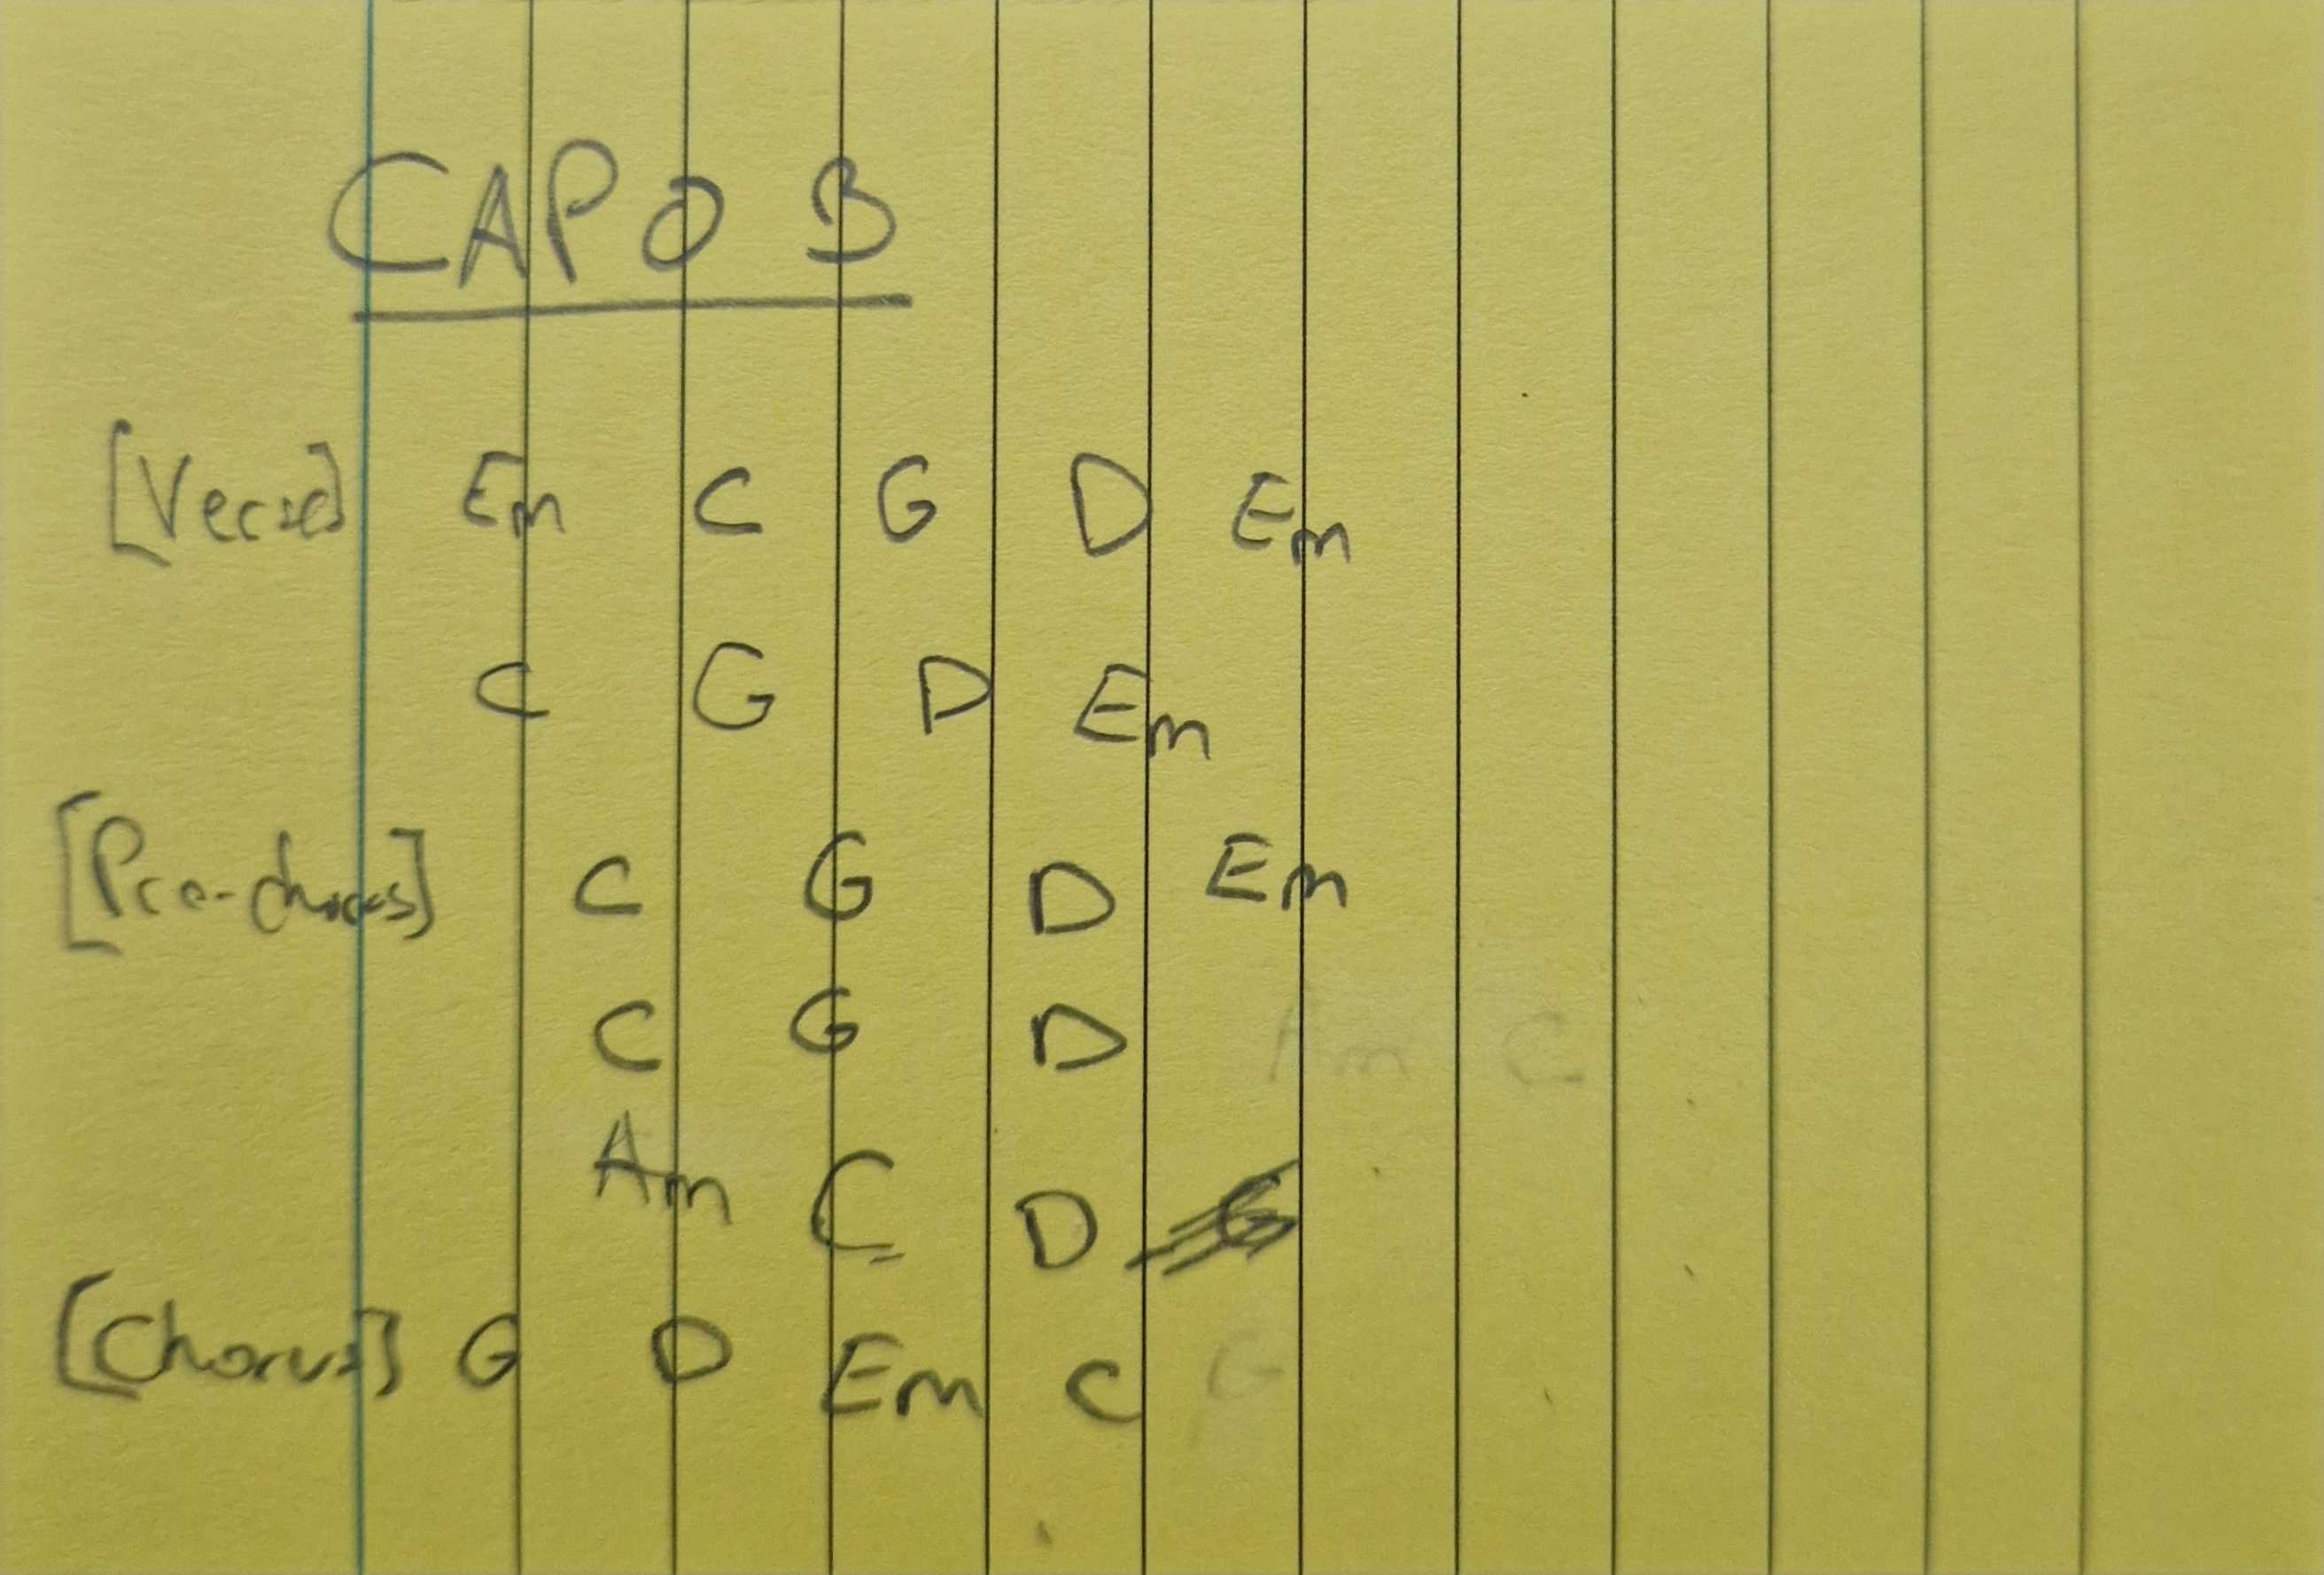 CAPO 3
[Verse] Em C G D Em
C G D Em
[Pre-chorus] C G D Em
C G D
Am C D
[Chorus] G D Em C